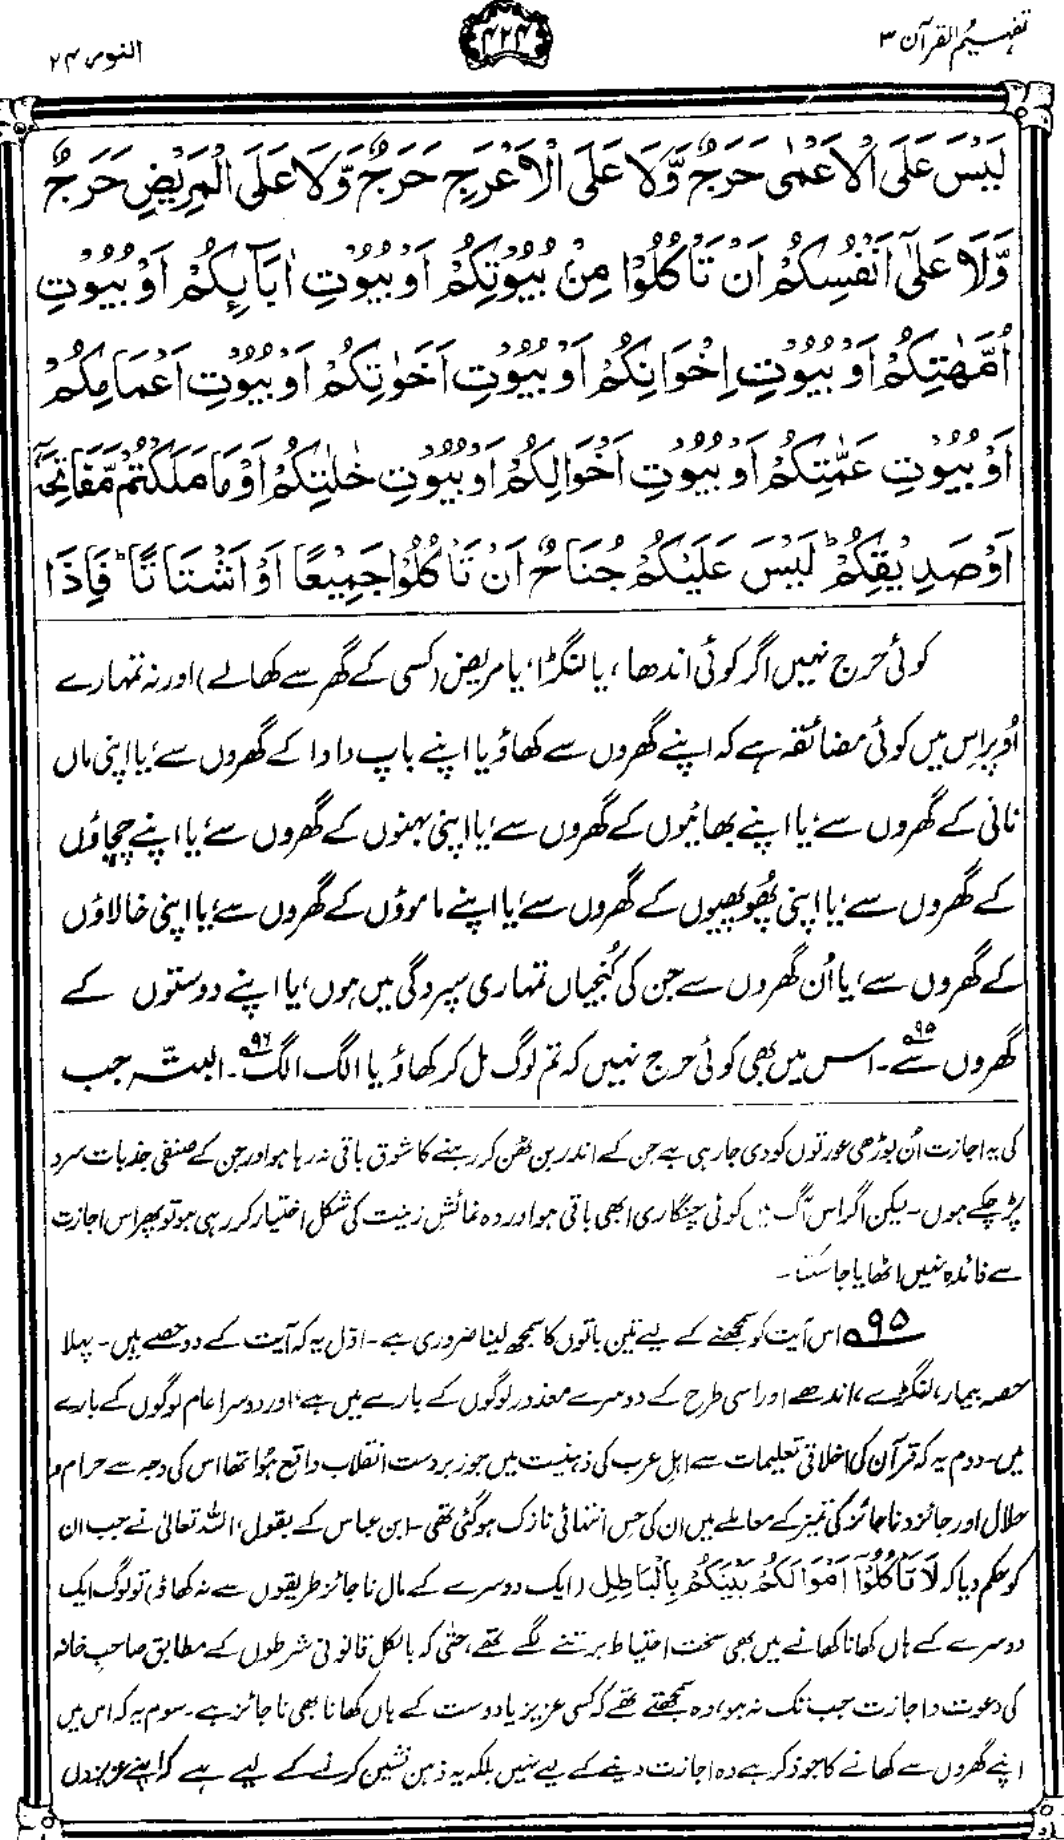 تفہیم القرآن ۳
۴۲۴
النور ۲۴
لَيْسَ عَلَى الْاَعْمٰى حَرَجٌ وَّلَا عَلَى الْاَعْرَجِ حَرَجٌ وَّلَا عَلَى الْمَرِيْضِ حَرَجٌ
وَّلَا عَلٰٓى اَنْفُسِكُمْ اَنْ تَاْكُلُوْا مِنْۢ بُيُوْتِكُمْ اَوْ بُيُوْتِ اٰبَآىِٕكُمْ اَوْ بُيُوْتِ
اُمَّهٰتِكُمْ اَوْ بُيُوْتِ اِخْوَانِكُمْ اَوْ بُيُوْتِ اَخَوٰتِكُمْ اَوْ بُيُوْتِ اَعْمَامِكُمْ
اَوْ بُيُوْتِ عَمّٰتِكُمْ اَوْ بُيُوْتِ اَخْوَالِكُمْ اَوْ بُيُوْتِ خٰلٰتِكُمْ اَوْ مَا مَلَكْتُمْ مَّفَاتِحَهٗٓ
اَوْ صَدِيْقِكُمْ ؕ لَيْسَ عَلَيْكُمْ جُنَاحٌ اَنْ تَاْكُلُوْا جَمِيْعًا اَوْ اَشْتَاتًا ؕ فَاِذَا
کوئی حرج نہیں اگر کوئی اندھا، یا لنگڑا، یا مریض (کسی کے گھر سے کھالے) اور نہ تمہارے
اُوپر اِس میں کوئی مضائقہ ہے کہ اپنے گھروں سے کھاؤ یا اپنے باپ دادا کے گھروں سے، یا اپنی ماں
نانی کے گھروں سے، یا اپنے بھائیوں کے گھروں سے، یا اپنی بہنوں کے گھروں سے، یا اپنے چچاؤں
کے گھروں سے، یا اپنی پُھوپھیوں کے گھروں سے، یا اپنے ماموؤں کے گھروں سے، یا اپنی خالاؤں
کے گھروں سے، یا اُن گھروں سے جن کی کُنجیاں تمہاری سپردگی میں ہوں، یا اپنے دوستوں کے
گھروں سے۔۹۵ اس میں بھی کوئی حرج نہیں کہ تم لوگ مل کر کھاؤ یا الگ الگ۔۹۶ البتہ جب
کی یہ اجازت اُن بوڑھی عورتوں کو دی جا رہی ہے جن کے اندر بن ٹھن کر رہنے کا شوق باقی نہ رہا ہو اور جن کے صنفی جذبات سرد
پڑ چکے ہوں۔ لیکن اگر اس آگ میں کوئی چنگاری ابھی باقی ہو اور وہ نمائش زینت کی شکل اختیار کر رہی ہو تو پھر اس اجازت
سے فائدہ نہیں اٹھایا جا سکتا۔
۹۵ اس آیت کو سمجھنے کے لیے تین باتوں کا سمجھ لینا ضروری ہے۔ اوّل یہ کہ آیت کے دو حصے ہیں۔ پہلا
حصہ بیمار، لنگڑے، اندھے اور اسی طرح کے دوسرے معذور لوگوں کے بارے میں ہے، اور دوسرا عام لوگوں کے بارے
میں۔ دوم یہ کہ قرآن کی اخلاقی تعلیمات سے اہلِ عرب کی ذہنیت میں جو زبردست انقلاب واقع ہُوا تھا اس کی وجہ سے حرام و
حلال اور جائز و ناجائز کی تمیز کے معاملے میں ان کی حِس انتہائی نازک ہو گئی تھی۔ ابن عباس کے بقول، اللہ تعالیٰ نے جب ان
کو حکم دیا کہ لَا تَاْكُلُوْٓا اَمْوَالَكُمْ بَيْنَكُمْ بِالْبَاطِلِ (ایک دوسرے کے مال ناجائز طریقوں سے نہ کھاؤ) تو لوگ ایک
دوسرے کے ہاں کھانا کھانے میں بھی سخت احتیاط برتنے لگے تھے، حتٰی کہ بالکل قانونی شرطوں کے مطابق صاحبِ خانہ
کی دعوت و اجازت جب تک نہ ہو، وہ سمجھتے تھے کہ کسی عزیز یا دوست کے ہاں کھانا بھی ناجائز ہے۔ سوم یہ کہ اس میں
اپنے گھروں سے کھانے کا جو ذکر ہے وہ اجازت دینے کے لیے نہیں بلکہ یہ ذہن نشین کرنے کے لیے ہے کہ اپنے عزیزوں